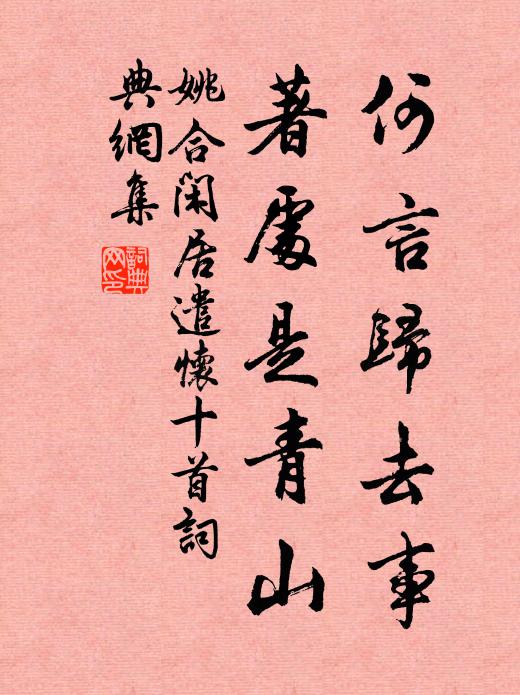 何言歸去事
著處是青山
姚合閑居遣懷十首詞
典網集
詞典
网印